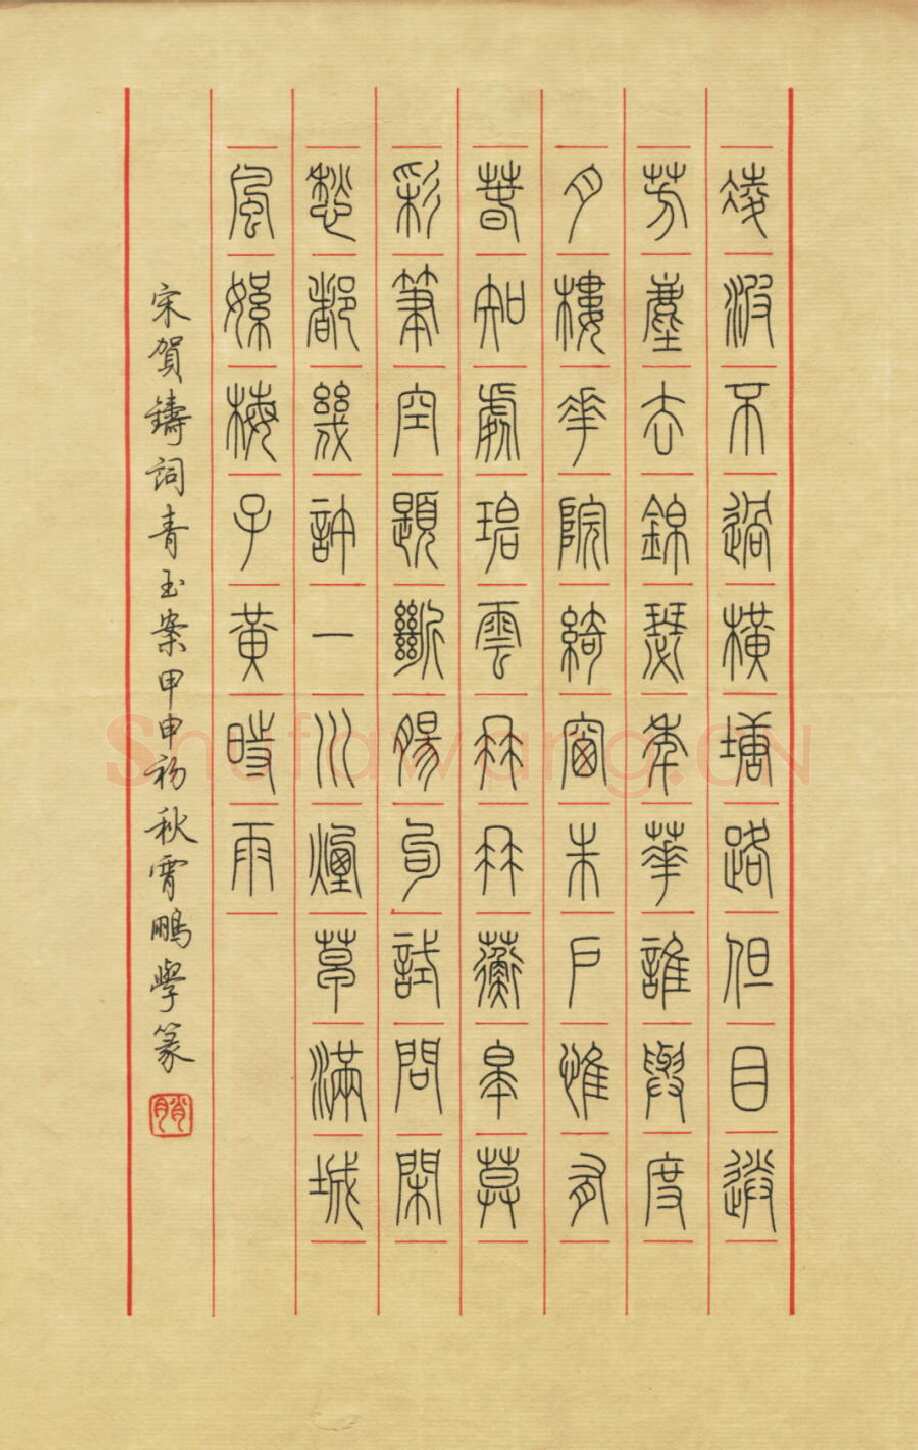 淩波不過橫塘路但目送
芳塵去錦瑟年華誰與度
月樓花院綺窗朱戶惟有
春知處碧雲冉冉蘅皋暮
彩筆空題斷腸句試問閑
愁都幾許一川煙草滿城
風絮梅子黃時雨
宋賀鑄詞青玉案甲申初秋霄鵬學篆
Shufawang.CN